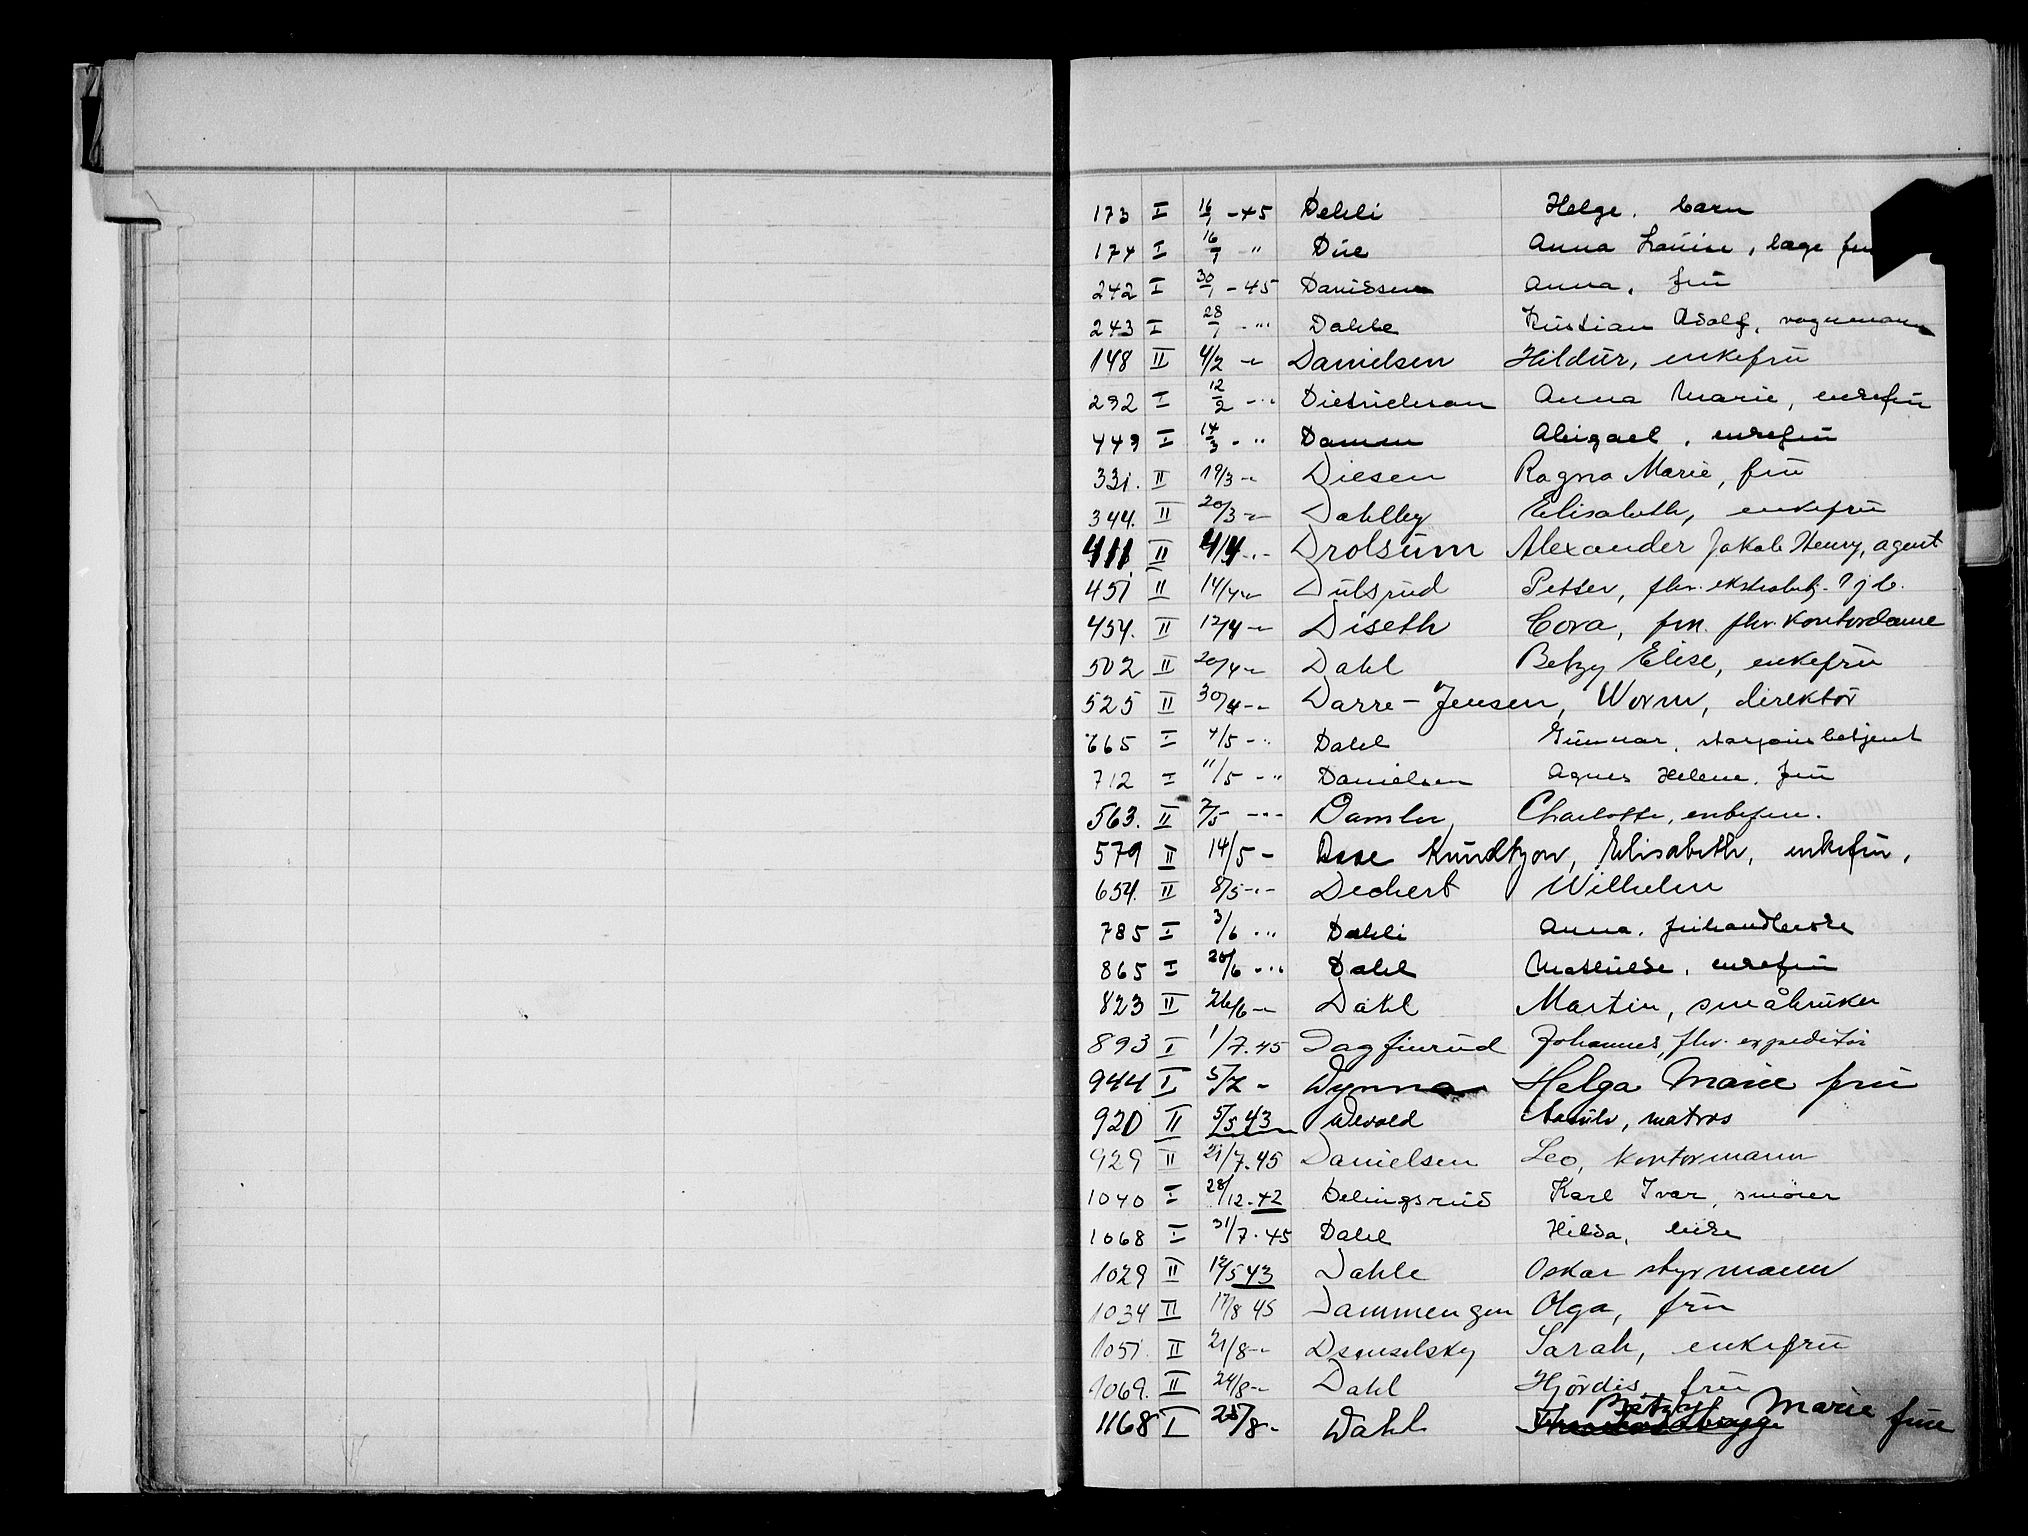 173 I 16/1 -45 Dehli Helge, barn
174 I 16/1 - " Due Anna Louise, læge
242 I 30/1 - 45 Danissen Anna, frü
243 I 28/1 - " Dahle Kristian Adolf, vognmann
148 II 4/2 - " Danielsen Hildür, enkefrü
292 I 12/2 - " Dietrichson Anna Marie, enkefrü
449 I 14/3 - " Damm Abigael, enkefrü
331. II 19/3 - " Diesen Ragna Marie, frü
344. II 20/3 - " Dahlby Elisabeth, enkefrü
411 II 4/4 - " Drolsüm Alexander Jakob Henry, agent
451 II 14/4 - " Dülsrüd Petter, fhv.
454. II 12/4 - " Diseth Cora, frk. fhv. kontordame
502 II 20/4 - " Dahl Betzy Elise, enkefrü
525 II 30/4 - " Darre-Jensen, Worm, direktör
665 I 4/5 - " Dahl Günnar, stasjonsbetjent
712 I 11/5 - " Danielsen Agnes Helene, frü
563. II 7/5 - " Damler Charlotte, enkefru.
579 II 14/5 - Doxe Knüdtzon, Elisabeth, enkefrü,
654. II 8/5 - " Dechert Wilhelm
785 I 3/6 - " Dahli Anna,
865 I 20/6 - " Dahl Mathilde, enkefrü
823 II 26/6 - " Dahl Martin, småbrüker
893 I 1/7.45 Dagfinrüd Johannes, fhv. expeditör
944 I 5/7 - Dynna Helga Marie frü
920 II 5/5 43 Devold matros
929 II 21/7.45 Danielsen Leo, kontormann
1040 I 28/12.42 Delingsrüd Karl Ivar, smører
1068 I 31/7.45 Dahl Hilda, enke
1029 II 12/5 43 Dahle Oskar styrmann
1034 II 17/8 45 Dammengen Olga, frü
1051 II 21/8 - " Dsenselsky Sarah, enkefrü
1069. II 24/8 - " Dahl Hjördis, frü
1168 I 25/8 - Dahl Betzy Marie früe